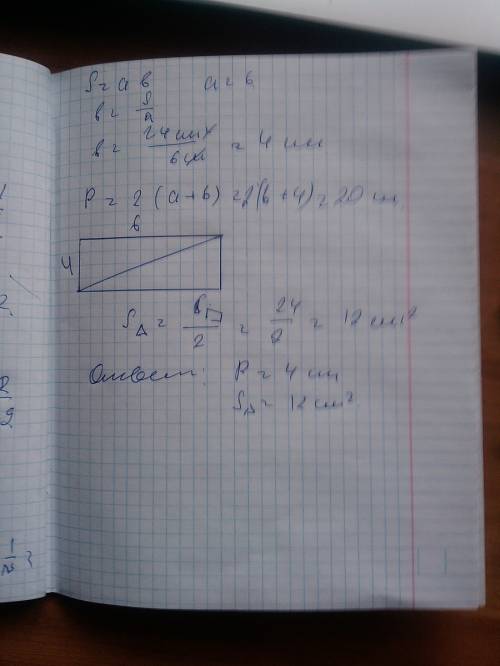 S = a в a = 6
в = S/a
в = 24 см²/6 см = 4 см
P = 2 (a + b) = 2(6+4) = 20 см
6
4
S△ = S▭/2 = 24/2 = 12 см²
Ответ: P = 4 см
S△ = 12 см².